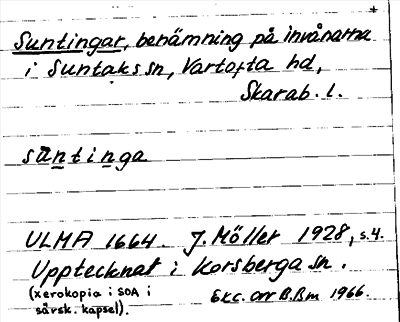 Suntingar, benämning på invånarna
i Suntaks sn, Vartofta hd,
Skarab. l.
suntinga
ULMA 1664. J. Möller 1928, s. 4.
Upptecknat i Korsberga sn.
(xerokopia i SOA i
särsk. kapsel).
Exc. orr B.Bm 1966.